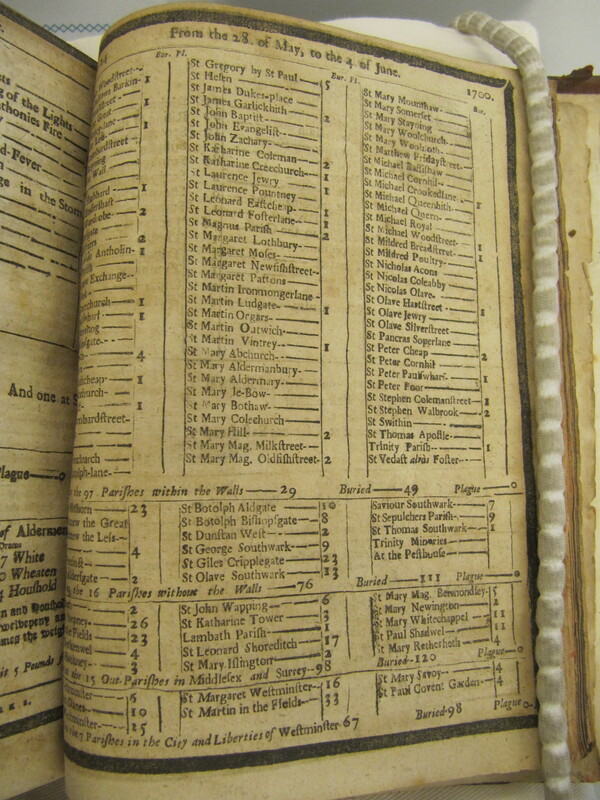 s of the Lights
thonies Fire
d-Fever
ge in the Stom
And one at S
Plague — 0
of Aldermen
7 White
0 Wheaten
4 Houshold
From the 28. of May, to the 4 of June.
1700.
Bur. Pl.
Bur. Pl.
Bur.
Woodstreet
Barkin 1
1
1
dstreet
Wall
hubbard 1
2
2
Antholin
1
Exchange
church 1
1
4
cheap 1
church
1
mbardstreet
church
olph-lane
St Gregory by St Paul 5
St Helen
St James Dukes-place
St James Garlickhith
St John Baptist 2
St John Evangelist
St John Zachary
St Katharine Coleman
St Katharine Creechurch 2
St Laurence Jewry 1
St Laurence Pountney 1
St Leonard Eastcheap 1
St Leonard Fosterlane 1
St Magnus Parish 2
St Margaret Lothbury 2
St Margaret Moses
St Margaret Newfishstreet
St Margaret Pattons
St Martin Ironmongerlane
St Martin Ludgate 1
St Martin Orgars
St Martin Outwich
St Martin Vintrey 1
St Mary Abchurch
St Mary Aldermanbury
St Mary Aldermary
St Mary le-Bow
St Mary Bothaw
St Mary Colechurch
St Mary Hill 2
St Mary Mag. Milkstreet
St Mary Mag. Oldfishstreet 2
St Mary Mounthaw
St Mary Somerset
St Mary Stayning
St Mary Woolchurch
St Mary Woolnoth
St Matthew Fridaystreet
St Michael Bassishaw
St Michael Cornhil
St Michael Crookedlane
St Michael Queenhith 1
St Michael Quern
St Michael Royal
St Michael Woodstreet
St Mildred Breadstreet 1
St Mildred Poultry 1
St Nicholas Acons
St Nicolas Coleabby
St Nicolas Olave
St Olave Hartstreet
St Olave Jewry 1
St Olave Silverstreet
St Pancras Soperlane
St Peter Cheap 2
St Peter Cornhil
St Peter Paulswharf 1
St Peter Poor
St Stephen Colemanstreet 1
St Stephen Walbrook 2
St Swithin
St Thomas Apostle
Trinity Parish 1
St Vedast aliàs Foster
the 97 Parishes within the Walls — 29 Buried — 49 Plague — 0
Holborn 23
the Great
the Less
4
Aldersgate 2
St Botolph Aldgate 10
St Botolph Bishopsgate 8
St Dunstan West 2
St George Southwark 9
St Giles Cripplegate 23
St Olave Southwark 13
Saviour Southwark 7
St Sepulchers Parish 9
St Thomas Southwark 1
Trinity Minories
At the Pesthouse
the 16 Parishes without the Walls — 76 Buried — 111 Plague — 0
2
26
Fields 23
4
3
St John Wapping 6
St Katharine Tower 3
Lambath Parish 1
St Leonard Shoreditch 17
St Mary Islington 2
St Mary Mag. Bermondsey 5
St Mary Newington 2
St Mary Whitechappel 11
St Paul Shadwel 11
St Mary Retherhoth 4
the 15 Out-Parishes in Middlesex and Surrey — 98 Buried — 120 Plague — 0
6
Danes 10
15
St Margaret Westminster 16
St Martin in the Fields 33
St Mary Savoy 4
St Paul Covent Garden 4
the 7 Parishes in the City and Liberties of Westminster 67 Buried — 98 Plague — 0